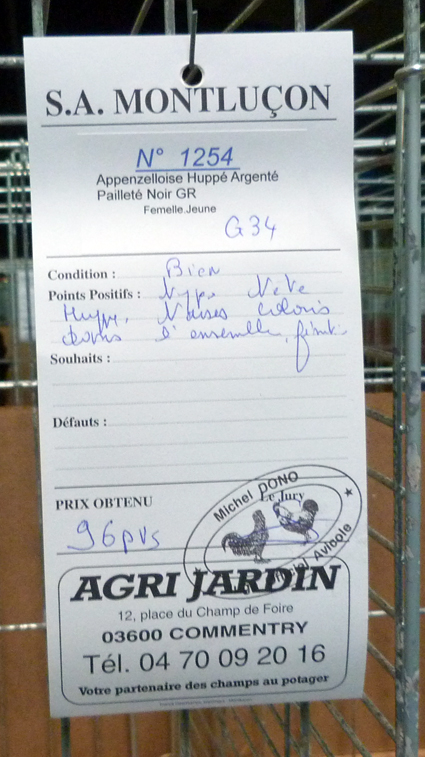 S.A. MONTLUÇON
N° 1254
Appenzelloise Huppé Argenté
Pailleté Noir GR
Femelle.Jeune
G34
Condition : Bien
Points Positifs : Type, Tête
Huppe, coloris
dans l'ensemble,
Souhaits :
Défauts :
PRIX OBTENU
Michel DONO
Le Jury
Avicole
96pts
AGRI JARDIN
12, place du Champ de Foire
03600 COMMENTRY
Tél. 04 70 09 20 16
Votre partenaire des champs au potager